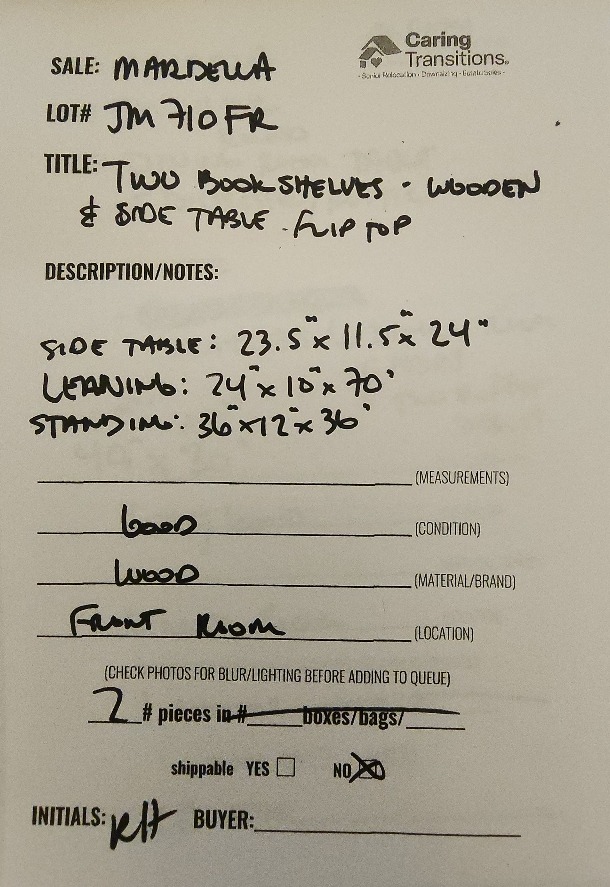 Caring
Transitions®
- Senior Relocation · Downsizing · Estate Sales -
SALE: MARDELLA
LOT# JM710FR
TITLE: TWO BOOKSHELVES - WOODEN
& SIDE TABLE - FLIP TOP
DESCRIPTION/NOTES:
SIDE TABLE: 23.5" x 11.5" x 24"
LEANING: 24" x 10" x 70"
STANDING: 36" x 12" x 36"
(MEASUREMENTS)
GOOD (CONDITION)
WOOD (MATERIAL/BRAND)
FRONT ROOM (LOCATION)
(CHECK PHOTOS FOR BLUR/LIGHTING BEFORE ADDING TO QUEUE)
2 # pieces in # boxes/bags/
shippable YES NO
INITIALS: RH BUYER: